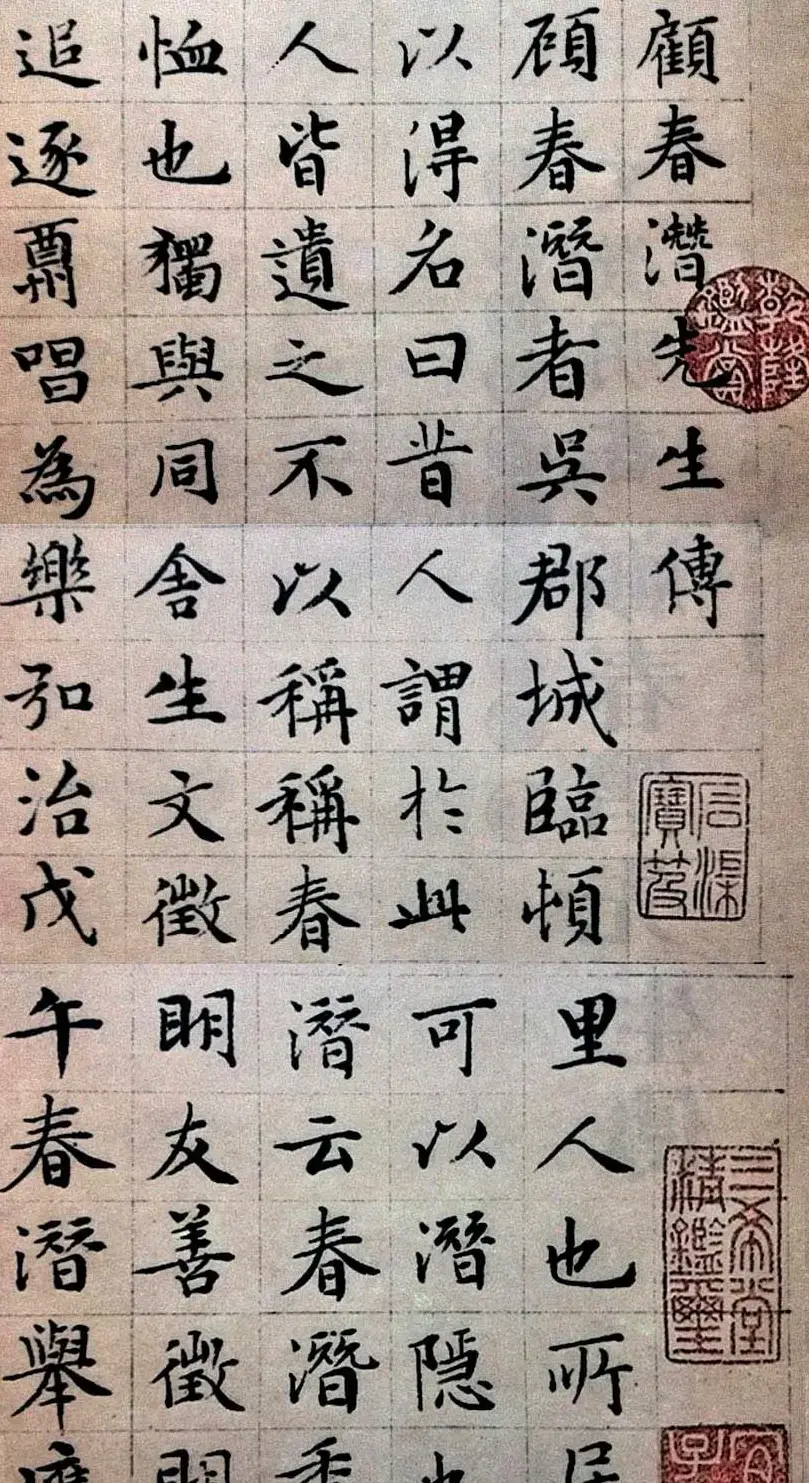 顧春潛先生傳
顧春潛者吳郡城臨頓里人也所居
以得名曰昔人謂於此可以潛隱也
人皆遺之不以稱稱春潛云春潛
恤也獨與同舍生文徵明友善徵明
追逐覊唱為樂弘治戊午春潛舉
乾隆鑑賞
石渠寶笈
三希堂精鑑璽